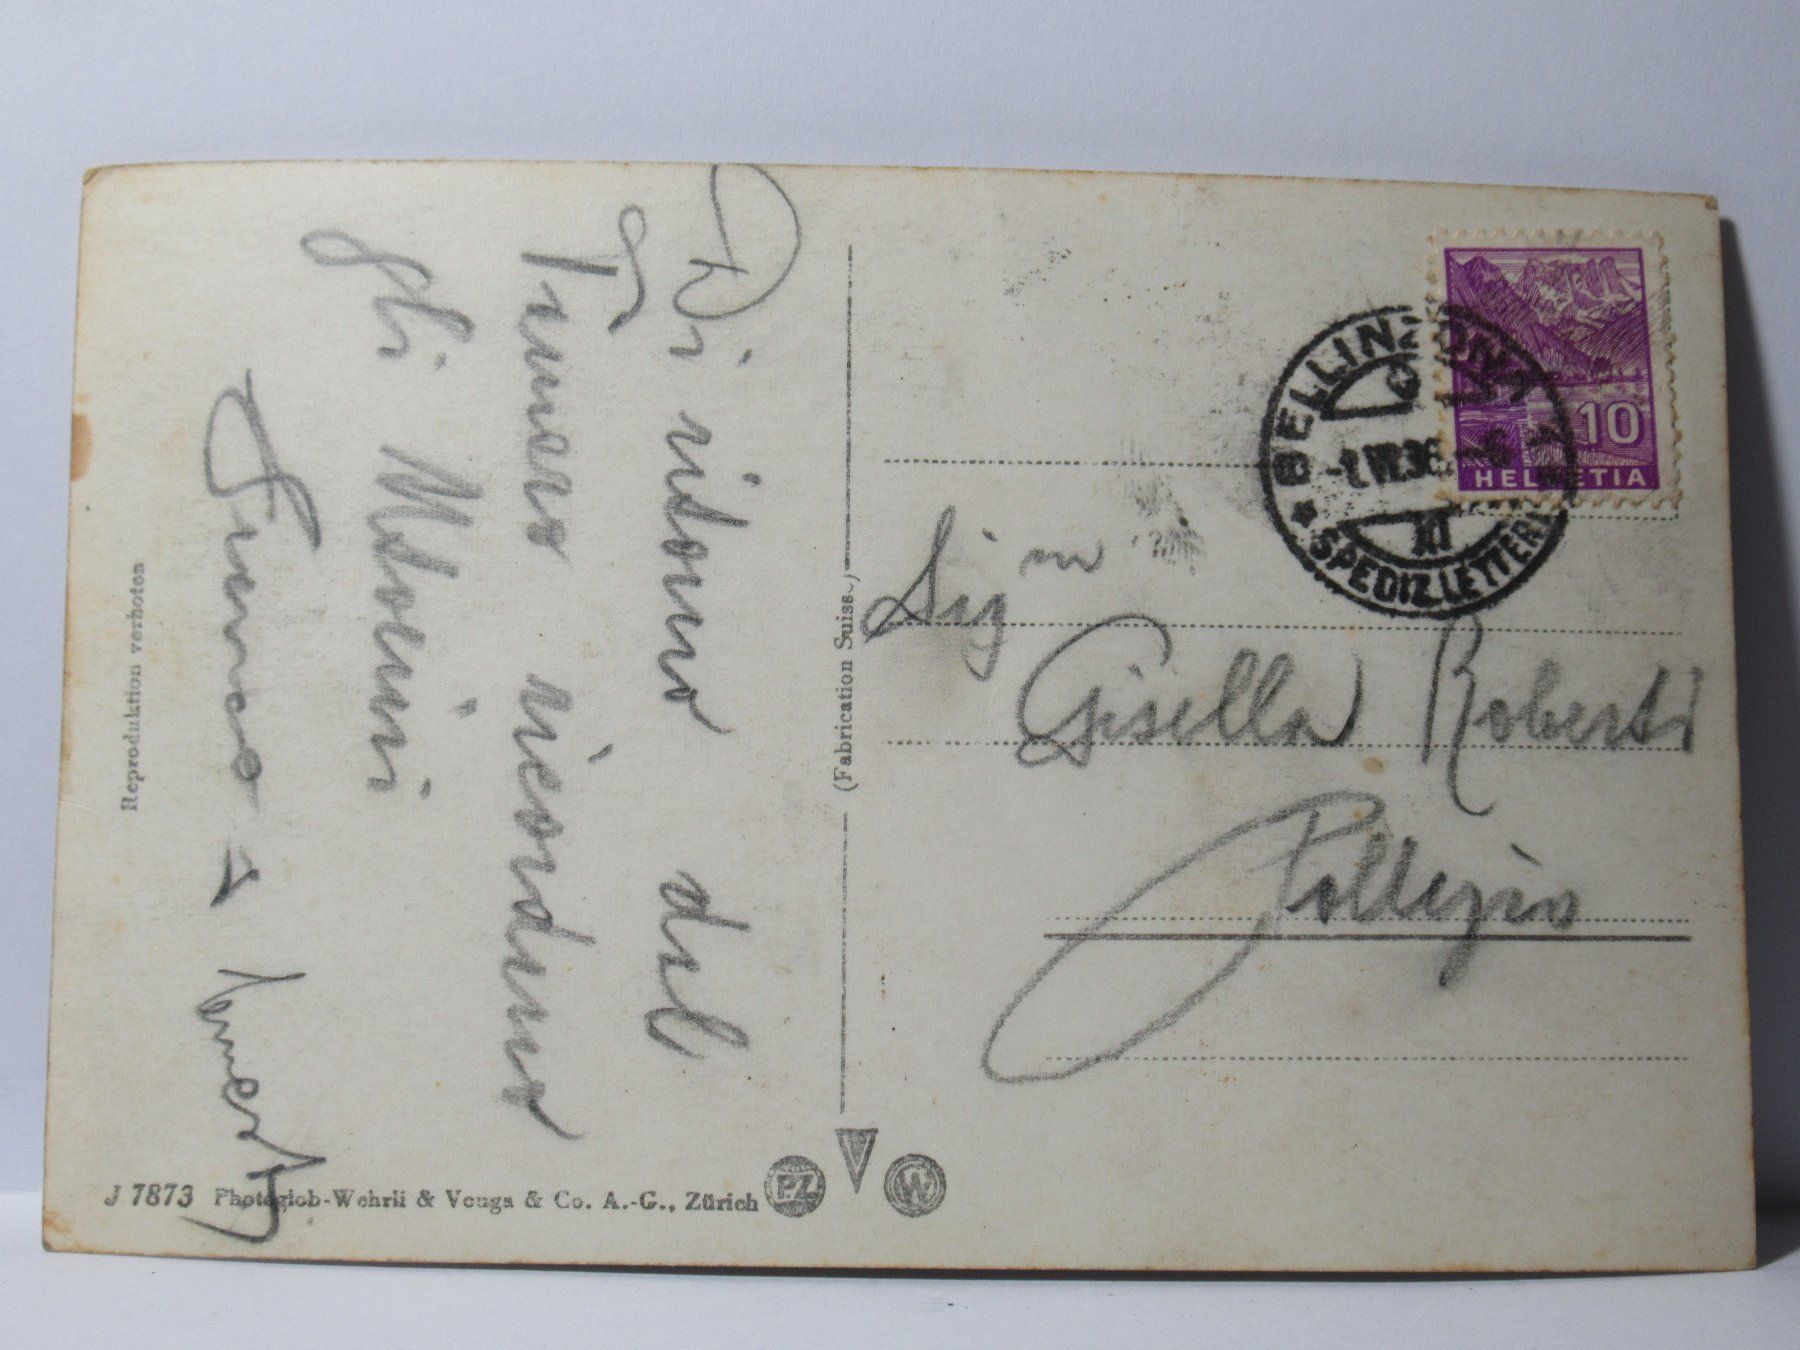 Di ritorno dal
Ticino ricordano
gli
Franco e Ernesto
Sig na
Gisella Roberti
Pollegio
HELVETIA
10
BELLINZONA
-1.VII.36.-6
XI
SPEDIZ. LETTERE
(Fabrication Suisse)
Reproduktion verboten
J 7873 Photoglob-Wehrli & Vouga & Co. A.-G., Zürich
PZ
W